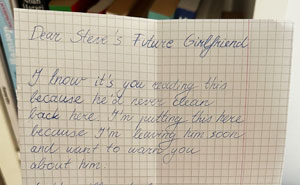 Dear Steve's Future Girlfriend
I know it's you reading this
because he'd never clean
back here. I'm putting this here
because I'm leaving him soon
and want to warn you
about him.